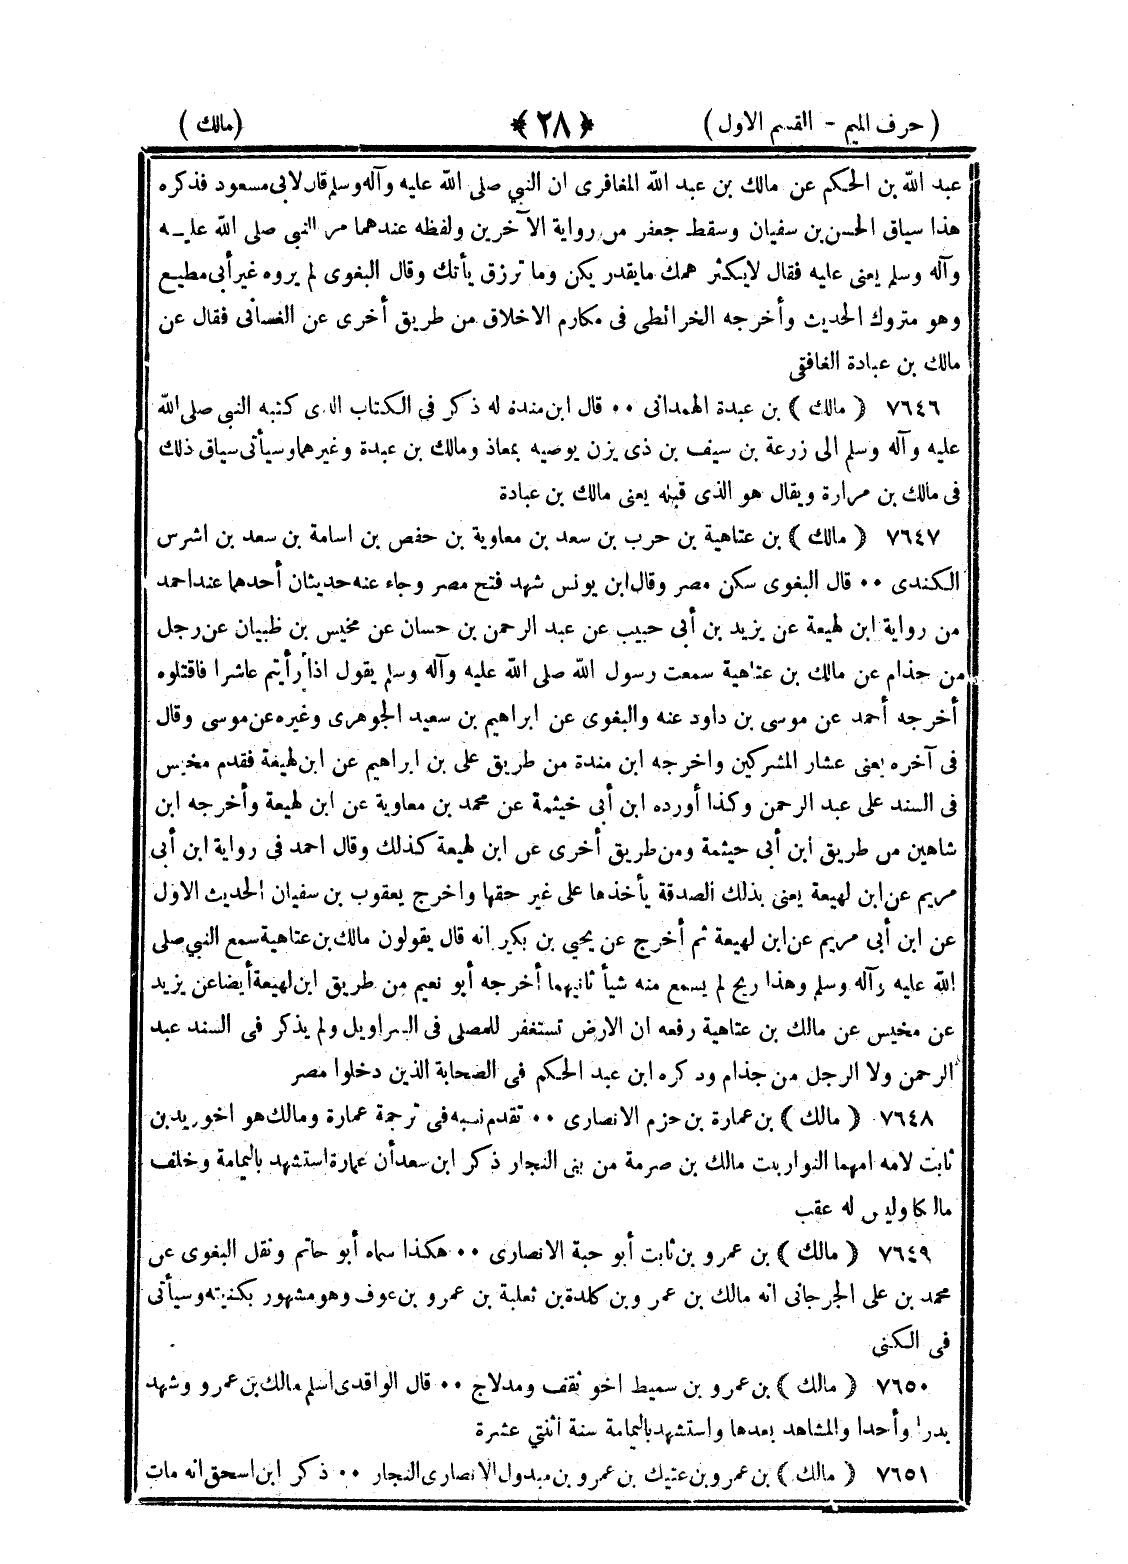 ( حرف الميم - القسم الاول ) ﴿ ٢٨ ﴾ ( مالك )
عبد الله بن الحكم عن مالك بن عبد الله المغافرى ان النبي صلى الله عليه وآله وسلم قال لابى مسعود فذكره
هذا سياق الحسن بن سفيان وسقط جعفر من رواية الآخرين ولفظه عندهما مر النبى صلى الله عليه
وآله وسلم يعنى عليه فقال لا يكثر همك ما يقدر يكن وما ترزق يأتك وقال البغوى لم يروه غير أبى مطيع
وهو متروك الحديث وأخرجه الخرائطى فى مكارم الاخلاق من طريق أخرى عن الغسانى فقال عن
مالك بن عبادة الغافقى
٧٦٤٦ ( مالك ) بن عبدة الهمدانى ٠٠ قال ابن مندة له ذكر فى الكتاب الذى كتبه النبى صلى الله
عليه وآله وسلم الى زرعة بن سيف بن ذى يزن يوصيه بمعاذ ومالك بن عبدة وغيرهما وسيأتى سياق ذلك
فى مالك بن مرارة ويقال هو الذى قبله يعنى مالك بن عبادة
٧٦٤٧ ( مالك ) بن عتاهية بن حرب بن سعد بن معاوية بن حفص بن اسامة بن سعد بن اشرس
الكندى ٠٠ قال البغوى سكن مصر وقال ابن يونس شهد فتح مصر وجاء عنه حديثان أحدهما عند احمد
من رواية ابن لهيعة عن يزيد بن أبى حبيب عن عبد الرحمن بن حسان عن مخيس بن ظبيان عن رجل
من جذام عن مالك بن عتاهية سمعت رسول الله صلى الله عليه وآله وسلم يقول اذا رأيتم عاشرا فاقتلوه
أخرجه أحمد عن موسى بن داود عنه والبغوى عن ابراهيم بن سعيد الجوهرى وغيره عن موسى وقال
فى آخره يعنى عشار المشركين واخرجه ابن مندة من طريق على بن ابراهيم عن ابن لهيعة فقدم مخيس
فى السند على عبد الرحمن وكذا أورده ابن أبى خيثمة عن محمد بن معاوية عن ابن لهيعة وأخرجه ابن
شاهين من طريق ابن أبى حيثمة ومن طريق أخرى عن ابن لهيعة كذلك وقال احمد فى رواية ابن أبى
مريم عن ابن لهيعة يعنى بذلك الصدقة يأخذها على غير حقها واخرج يعقوب بن سفيان الحديث الاول
عن ابن أبى مريم عن ابن لهيعة ثم أخرج عن يحيى بن بكير انه قال يقولون مالك بن عتاهية سمع النبي صلى
الله عليه وآله وسلم وهذا ريح لم يسمع منه شيأ ثانيهما أخرجه أبو نعيم من طريق ابن لهيعة أيضا عن يزيد
عن مخيس عن مالك بن عتاهية رفعه ان الارض تستغفر للمصلى فى السراويل ولم يذكر فى السند عبد
الرحمن ولا الرجل من جذام وذكره ابن عبد الحكم فى الصحابة الذين دخلوا مصر
٧٦٤٨ ( مالك ) بن عمارة بن حزم الانصارى ٠٠ تقدم نسبه فى ترجمة عمارة ومالك هو اخو زيد بن
ثابت لامه امهما النوار بنت مالك بن صرمة من بنى النجار ذكر ابن سعد أن عمارة استشهد باليمامة وخلف
مالكا وليس له عقب
٧٦٤٩ ( مالك ) بن عمرو بن ثابت أبو حبة الانصارى ٠٠ هكذا سماه أبو حاتم ونقل البغوى عن
محمد بن على الجرجانى انه مالك بن عمرو بن كلدة بن ثعلبة بن عمرو بن عوف وهو مشهور بكنيته وسيأتى
فى الكنى
٧٦٥٠ ( مالك ) بن عمرو بن سميط اخو ثقف ومدلاج ٠٠ قال الواقدى اسلم مالك بن عمرو وشهد
بدرا وأحدا والمشاهد بعدها واستشهد باليمامة سنة اثنتي عشرة
٧٦٥١ ( مالك ) بن عمرو بن عتيك بن عمرو بن مبدول الانصارى النجار ٠٠ ذكر ابن اسحق انه مات